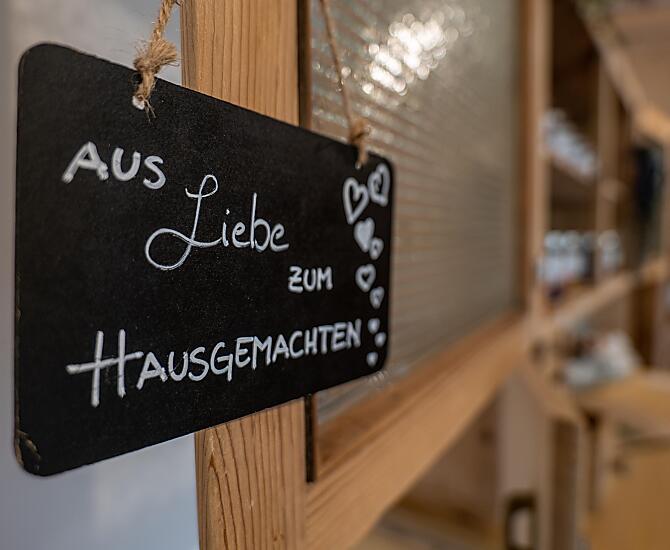 AUS
Liebe
ZUM
HAUSGEMACHTEN